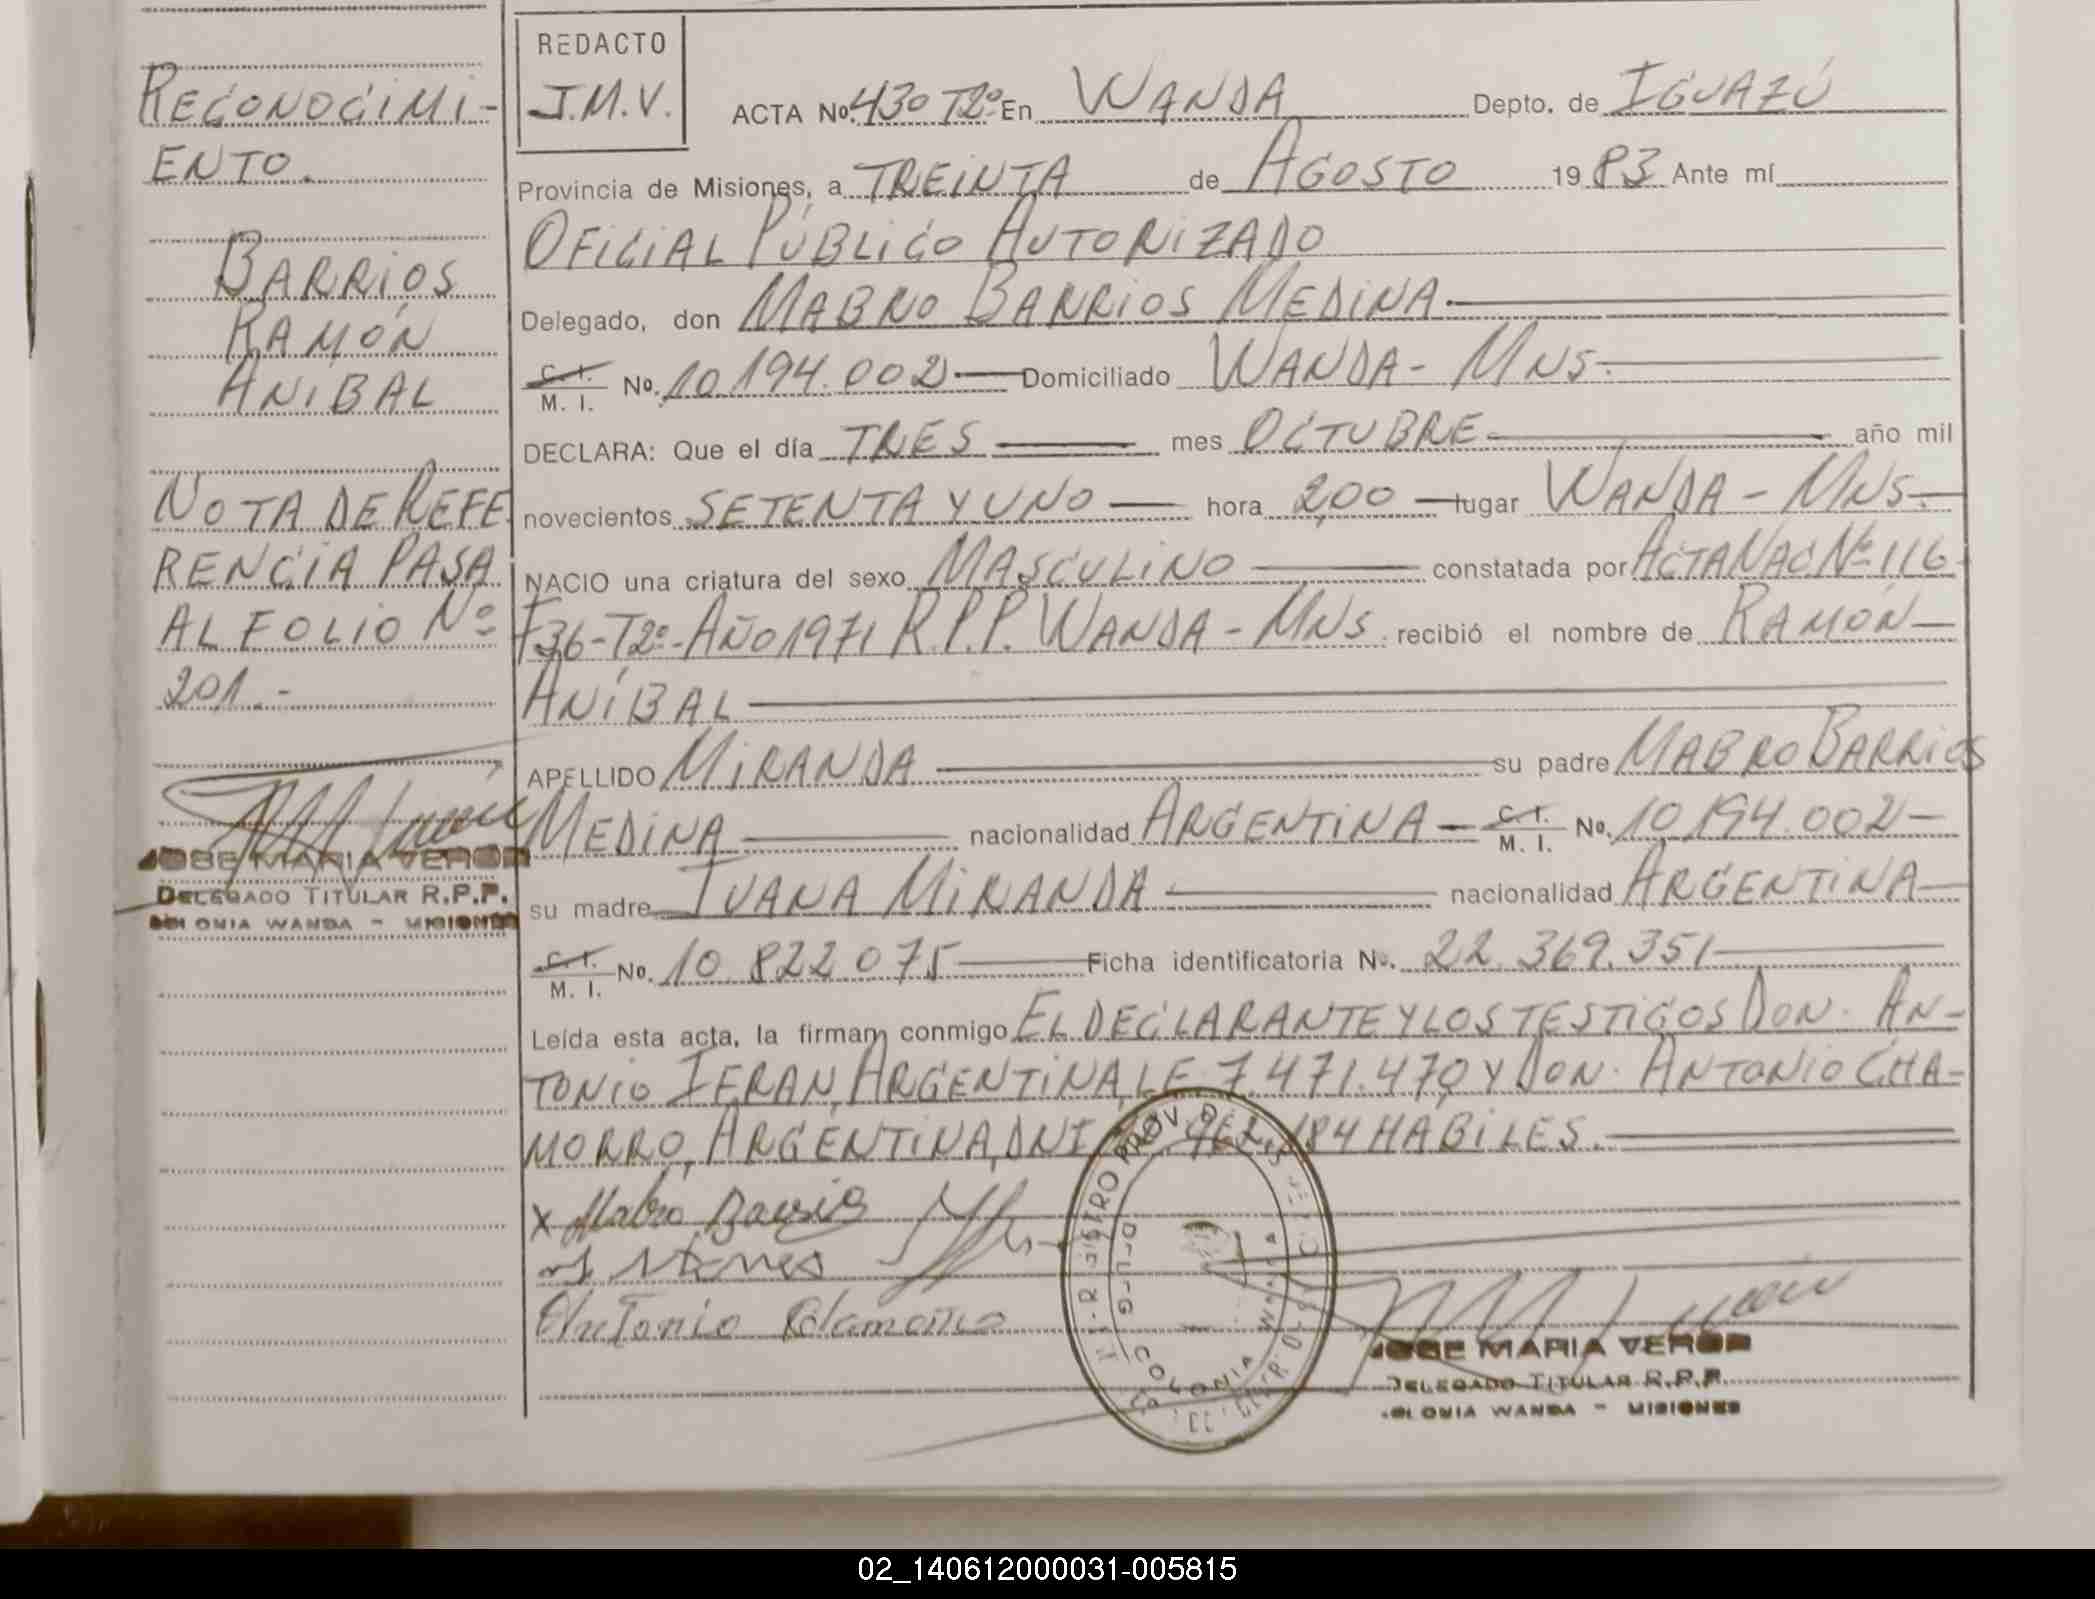 RECONOCIMI-
ENTO.
BARRIOS
RAMÓN
ANIBAL
NOTA DE REFE
RENCIA PASA
AL FOLIO Nº
201.-
JOSE MARIA VERON
DELEGADO TITULAR R.P.P.
COLONIA WANDA - MISIONES
REDACTO
J.M.V.
ACTA Nº. 430 T2º En WANDA Depto. de IGUAZÚ
Provincia de Misiones, a TREINTA de AGOSTO 1983 Ante mí
OFICIAL PÚBLICO AUTORIZADO
Delegado, don MABRO BARRIOS MEDINA.
C. I. M. I. Nº. 10.194.002 Domiciliado WANDA - MNS.
DECLARA: Que el día TRES mes OCTUBRE año mil
novecientos SETENTA Y UNO hora 2,00 lugar WANDA - MNS.
NACIO una criatura del sexo MASCULINO constatada por ACTA NAC Nº 116
F36-T2º-AÑO 1971 R.P.P. WANDA - MNS. recibió el nombre de RAMÓN
ANÍBAL
APELLIDO MIRANDA su padre MABRO BARRIOS
MEDINA nacionalidad ARGENTINA C. I. M. I. Nº. 10.194.002
su madre JUANA MIRANDA nacionalidad ARGENTINA
C. I. M. I. Nº. 10.822.075 Ficha identificatoria Nº. 22.369.351
Leída esta acta, la firman conmigo EL DECLARANTE Y LOS TESTIGOS DON. AN-
TONIO IERAN, ARGENTINA, LE 7.471.470 Y DON. ANTONIO CHA-
MORRO, ARGENTINA, DNI 184 HABILES.
x Mabro Barrios
Antonio Chamorro
COLONIA WANDA
JOSE MARIA VERON
DELEGADO TITULAR R.P.P.
COLONIA WANDA - MISIONES
02_140612000031-005815